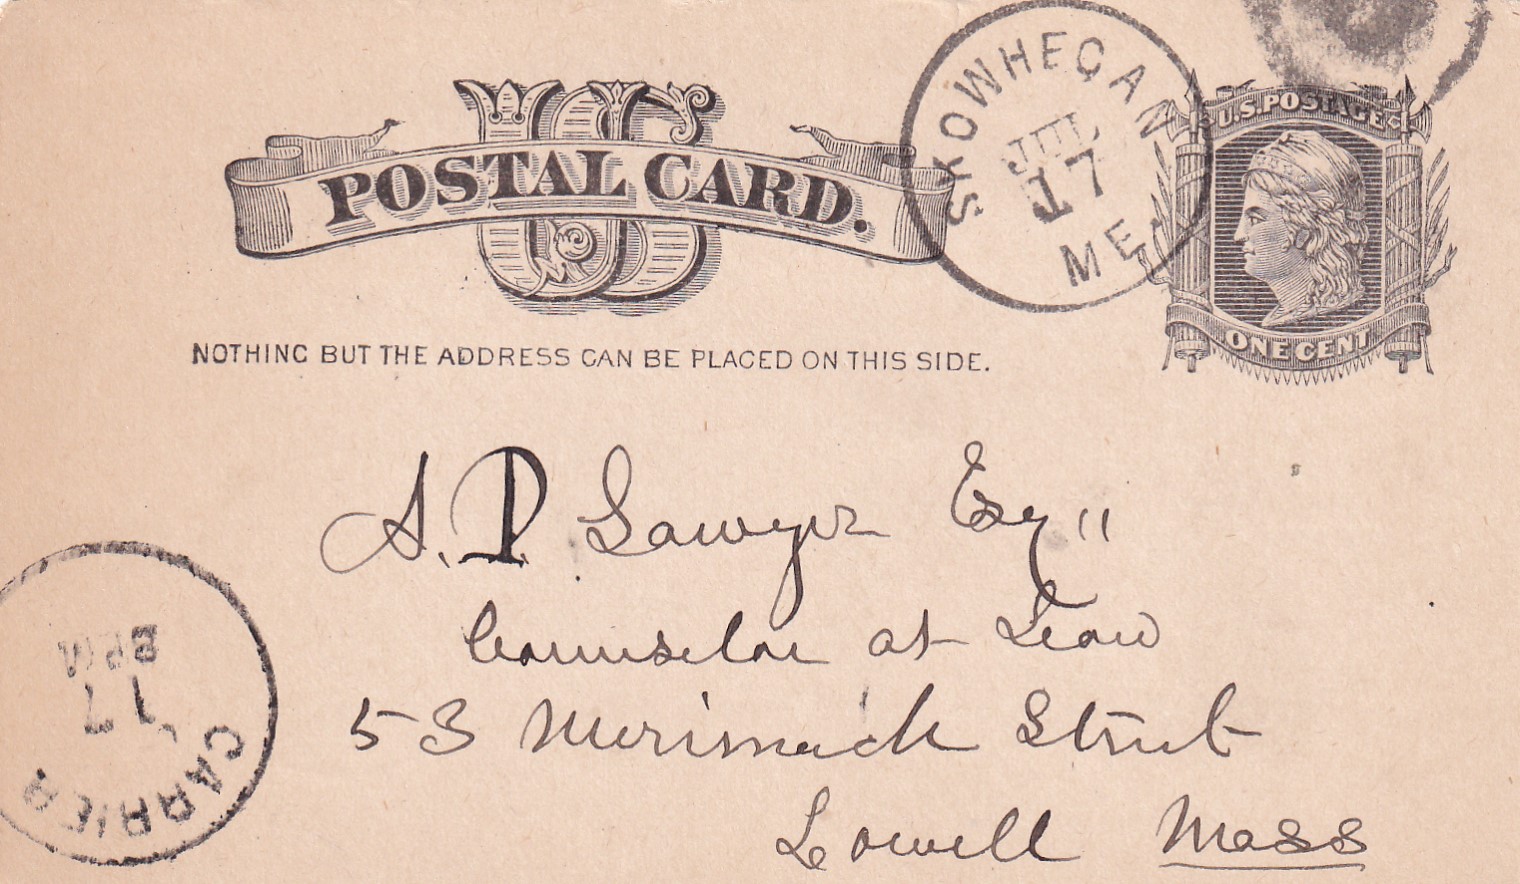 US
POSTAL CARD.
SKOWHEGAN
JUL
17
ME.
U.S. POSTAGE
ONE CENT
NOTHING BUT THE ADDRESS CAN BE PLACED ON THIS SIDE.
A. P. Sawyer Esq "
Counselor at Law
53 Merimack Street
Lowell Mass
CARRIER
17
8PM